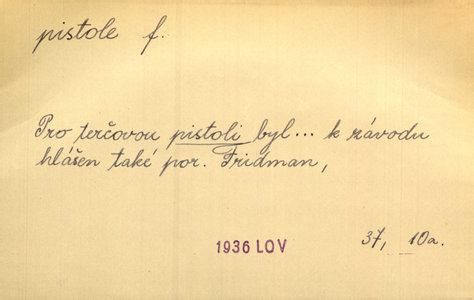 pistole f.
Pro terčovou pistoli byl... k závodu
hlášen také por. Fridman,
1936 LOV
37, 10a.